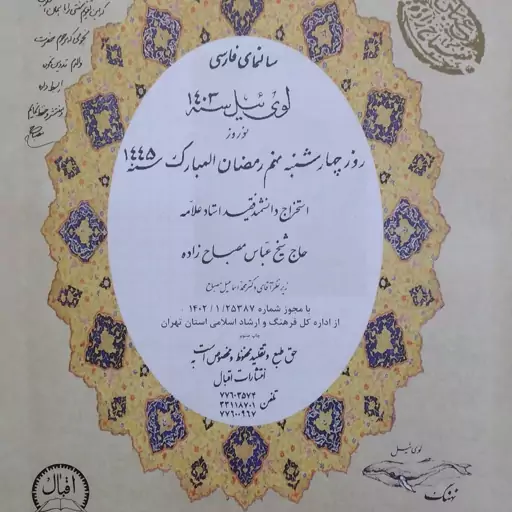 سالنمای فارسی
لوی ئیل سنه ۱۴۰۳
نوروز
روز چهارشنبه نهم رمضان المبارک سنه ۱۴۴۵
استخراج دانشمند فقید استاد علامه
حاج شیخ عباس مصباح زاده
زیر نظر آقای دکتر محمد اسماعیل مصباح
با مجوز شماره ۱/۲۵۳۸۷/ ۱۴۰۲
از اداره کل فرهنگ و ارشاد اسلامی استان تهران
حق طبع و تقلید محفوظ و مخصوص است به
انتشارات اقبال
تلفن
۷۷۶۰۳۵۷۴
۳۳۱۱۸۷۰۱
۷۷۶۰۰۹۶۷
لوی ئیل
نهنگ
اقبال